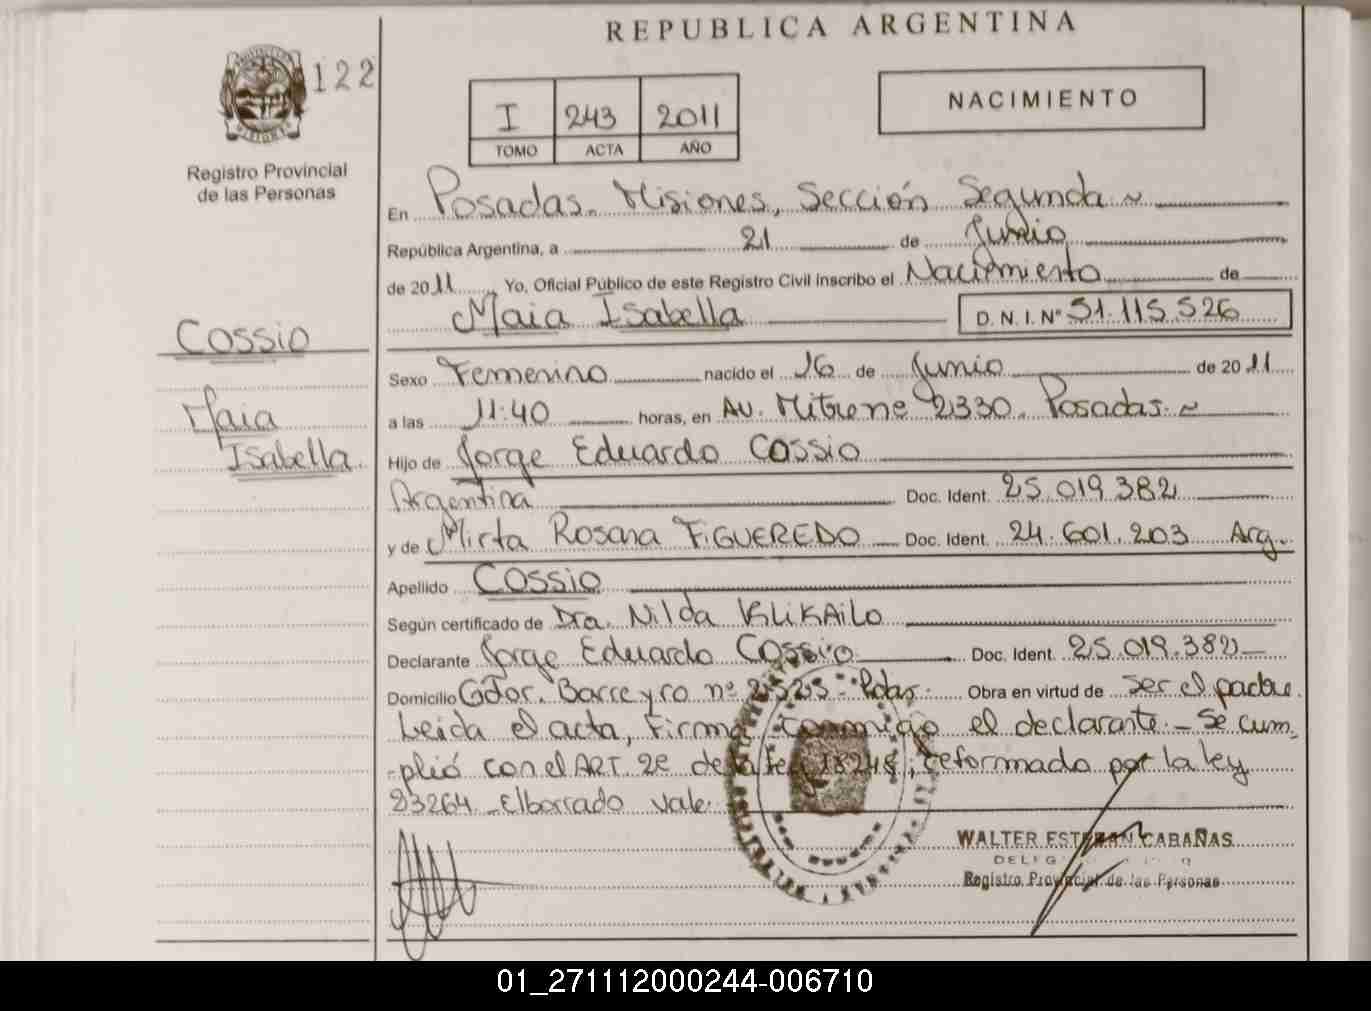 REPUBLICA ARGENTINA
122
I 243 2011
TOMO ACTA AÑO
NACIMIENTO
Registro Provincial
de las Personas
En Posadas. Misiones, Sección Segunda ~
República Argentina, a 21 de Junio
de 2011 Yo, Oficial Público de este Registro Civil inscribo el Nacimiento de
Maia Isabella D. N. I. Nº 51.115.526
COSSIO
Maia
Isabella
Sexo Femenino nacido el 16 de Junio de 2011
a las 11:40 horas, en Av. Mitre nº 2330. Posadas. ~
Hijo de Jorge Eduardo COSSIO
Argentina Doc. Ident. 25.019.382
y de Mirta Rosana FIGUEREDO Doc. Ident. 24.601.203 Arg.
Apellido COSSIO
Según certificado de Dra. Nilda KLIKAILO
Declarante Jorge Eduardo COSSIO Doc. Ident. 25.019.382
Domicilio Gdor. Barreyro nº - Pdas. Obra en virtud de ser el padre.
Leida el acta, firma conmigo el declarante. - Se cum-
-plió con el ART. 2º de la ley 18248, reformado por la ley
23264 - El borrado vale.
WALTER ESTEBAN CABAÑAS
Registro Provincial de las Personas
01_271112000244-006710